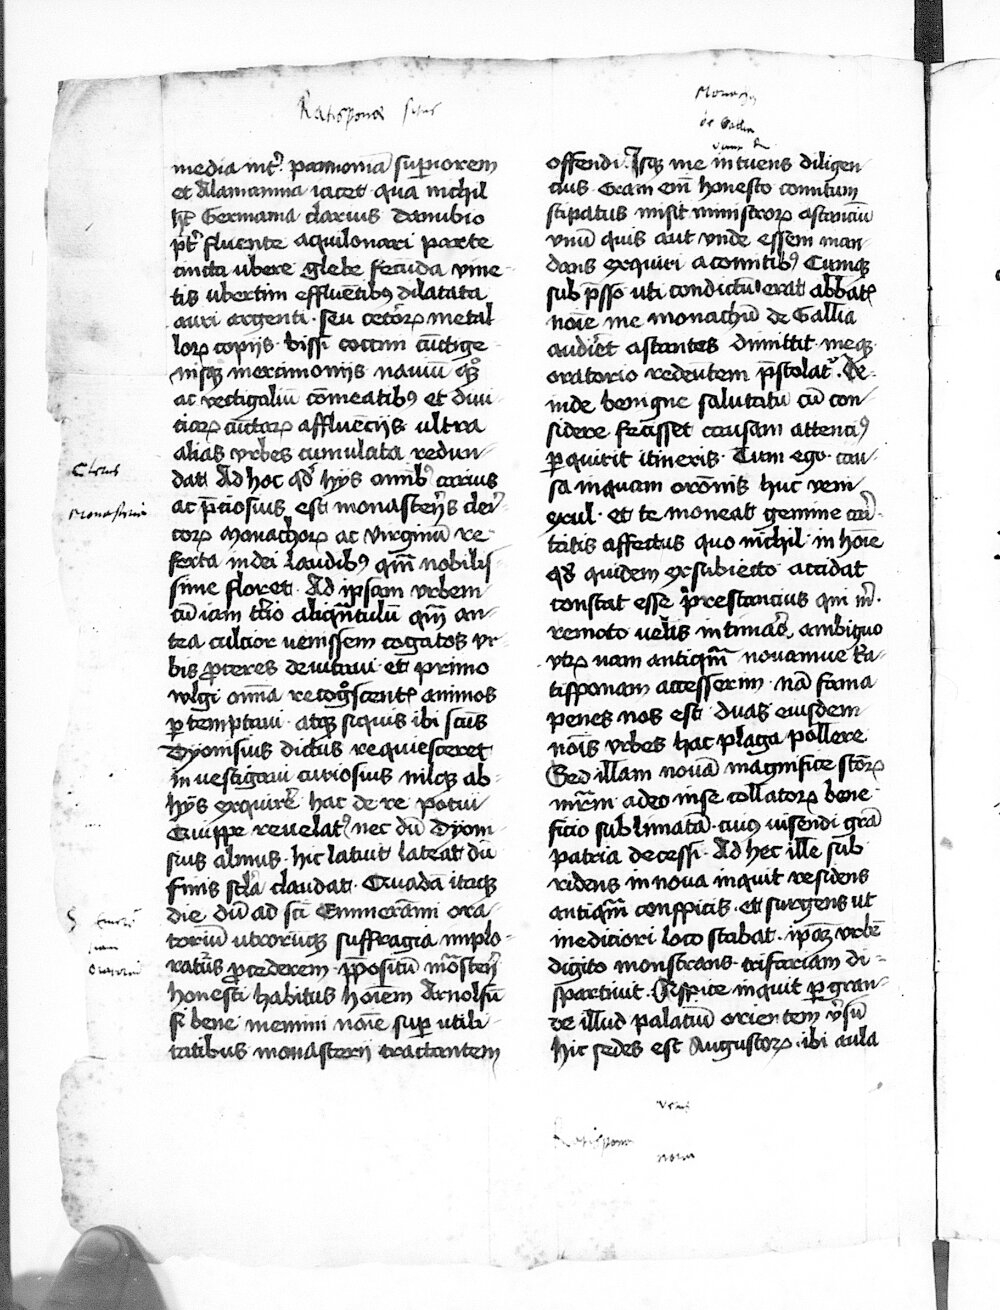 Ratisponae situs
media int͛ pannoniā sup̱iorem
et Alamannia iacet qua nichil
hꝫ Germania clarius danubio
p̄t͛ fluente aquilonari parte
cincta ubere glebe fecūda vine
tis ubertim effluētibꝰ dilatata
auri argenti · seu cetoꝝ metal
loꝝ copijs · bissi coccum
mercimonijs nauiū
ac vectigaliū cōmeatibꝰ et diui
ciaꝝ affluēcijs ultra
alias vrbes cumulata redun
dat Ad hoc qđ hijs omībꝰ carius
ac p̄ciosius est monasterijs cler͛
coꝝ Monachoꝝ ac Virginū re
ferta in dei laudibꝰ qm̄ nobilis
sime floret · Ad ipsam vrbem
cū iam aliqn̄tulū qm̄ an
tea cultior uenissem togatos vr
bis ꝓceres deuitaui et primo
wlgi om̄ia recog͛scentꝭ animos
ꝑ temptaui · atqꝫ siquis ibi sc̄us
dyonisius dictus requiesceret
inuestigaui curiosius nilqꝫ ab
hijs exquir̄e hac de re potui
Quippe reuelatꝰ nec dū dyoni
sius almus · hic latuit lateat dū
finis scl̄a claudat · Quadā itaqꝫ
die dū ad sc̄i Emmerāmi ora
toriū utrorūqꝫ suffragia implo
ratūs ꝓcederem · p̄positū mōsterij
honesti habitus hoīem Arnolfū
si bene memini noīe suꝑ utili
tatibus monasterii tractantem
Clerus
Monasteriis
S Emerā
Monachus
de Gallia
offendi · Isqꝫ me intuens diligen
cius · Eram em̄ honesto comitum
stipatus misit ministroꝝ astanciū
vnū quis aut vnde essem man
dans exquiri a comitibꝰ Cumqꝫ
sub p̄sso uti condictū erat abbatꝭ
noīe me monachū de Gallia
audiret astantes dimittit · meqꝫ
oratorio redeuntem p̄stolat͛ · De
inde benigne salutatū cū con
sidere fecisset causam attenciꝰ
ꝑquirit itineris · Tum ego · cau
sa inquam oracōnis huc veni
exul · et te moneat gemine cari
tatis affectus quo nichil in hoīe
qđ quidem ex subiecto accidat
constat esse prestancius qui m͛ ·
remoto uelis intimare, ambiguo
vtꝝ nam antiqm̄ nouamue Ra
tisponam accesserim · nā fama
penes nos est duas eiusdem
noīs vrbes hac plaga pollere
Sed illam nouā magnifice sc̄oꝝ
adeo in se collatoꝝ bene
ficio sublimatā · cuiꝰ uisendi grā
patria decessi · Ad hec ille sub
ridens in noua inquit residens
antiqm̄ conspicis · et surgens ut
in editiori loco stabat · ipāqꝫ vrbē
digito monstrans trifariam di
spartiuit · Respice inquit ꝑ gran
de illud palatiū orientem v͛sū
hic sedes est Augustoꝝ · ibi aula
vetus
Ratispona
noua